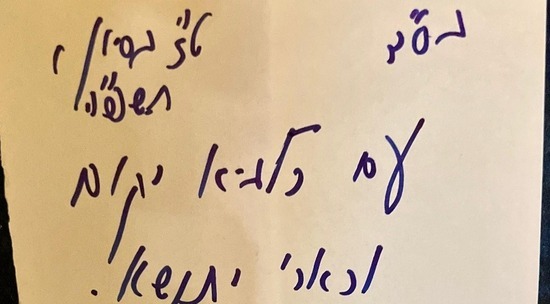 בס״ד ט״ז בסיון,
תשפ״ה
עם כלביא יקום
וכארי יתנשא.